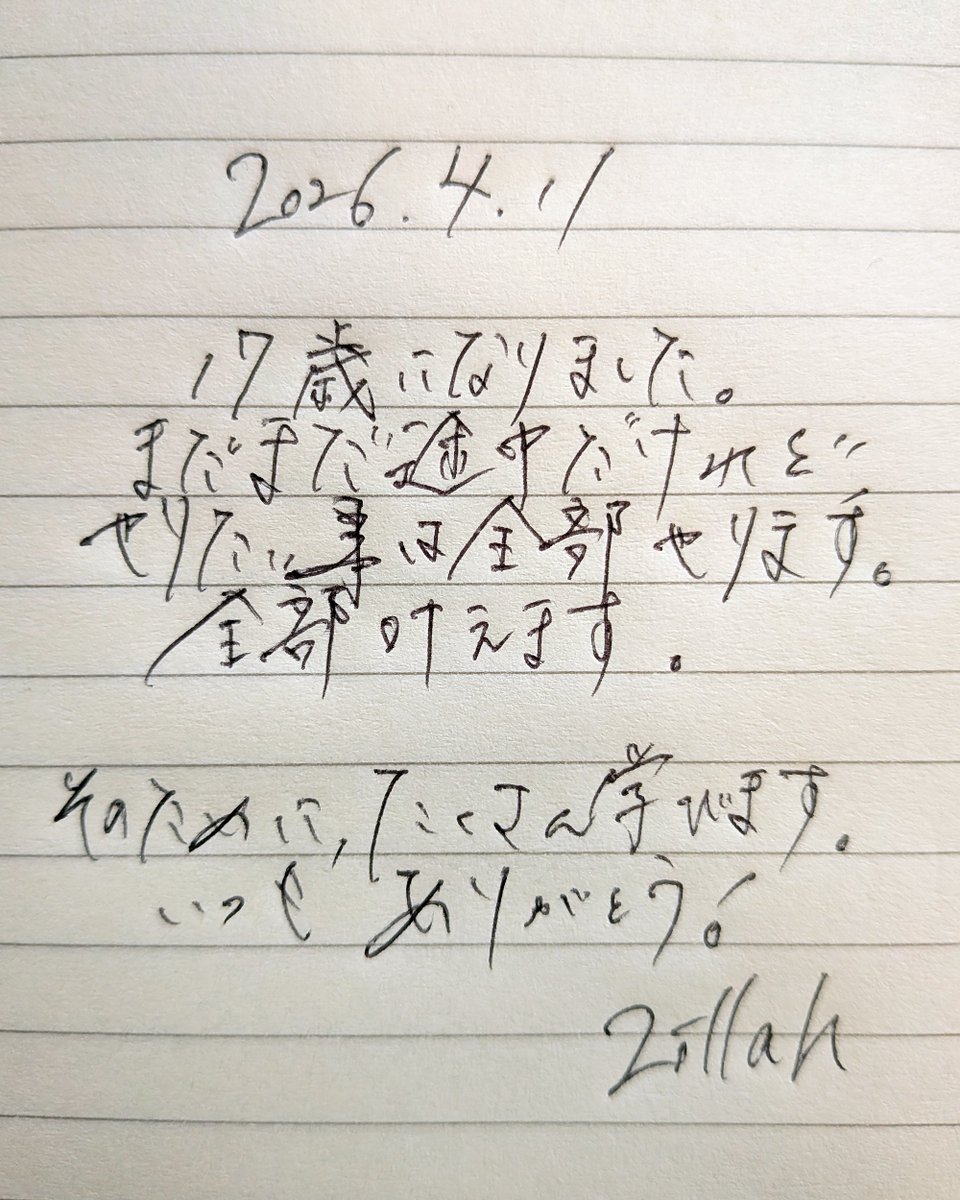 2026.4.11
17歳になりました。
まだまだ途中だけれど
やりたい事は全部やります。
全部叶えます。
そのために,たくさん学びます。
いつもありがとう!
Zillah